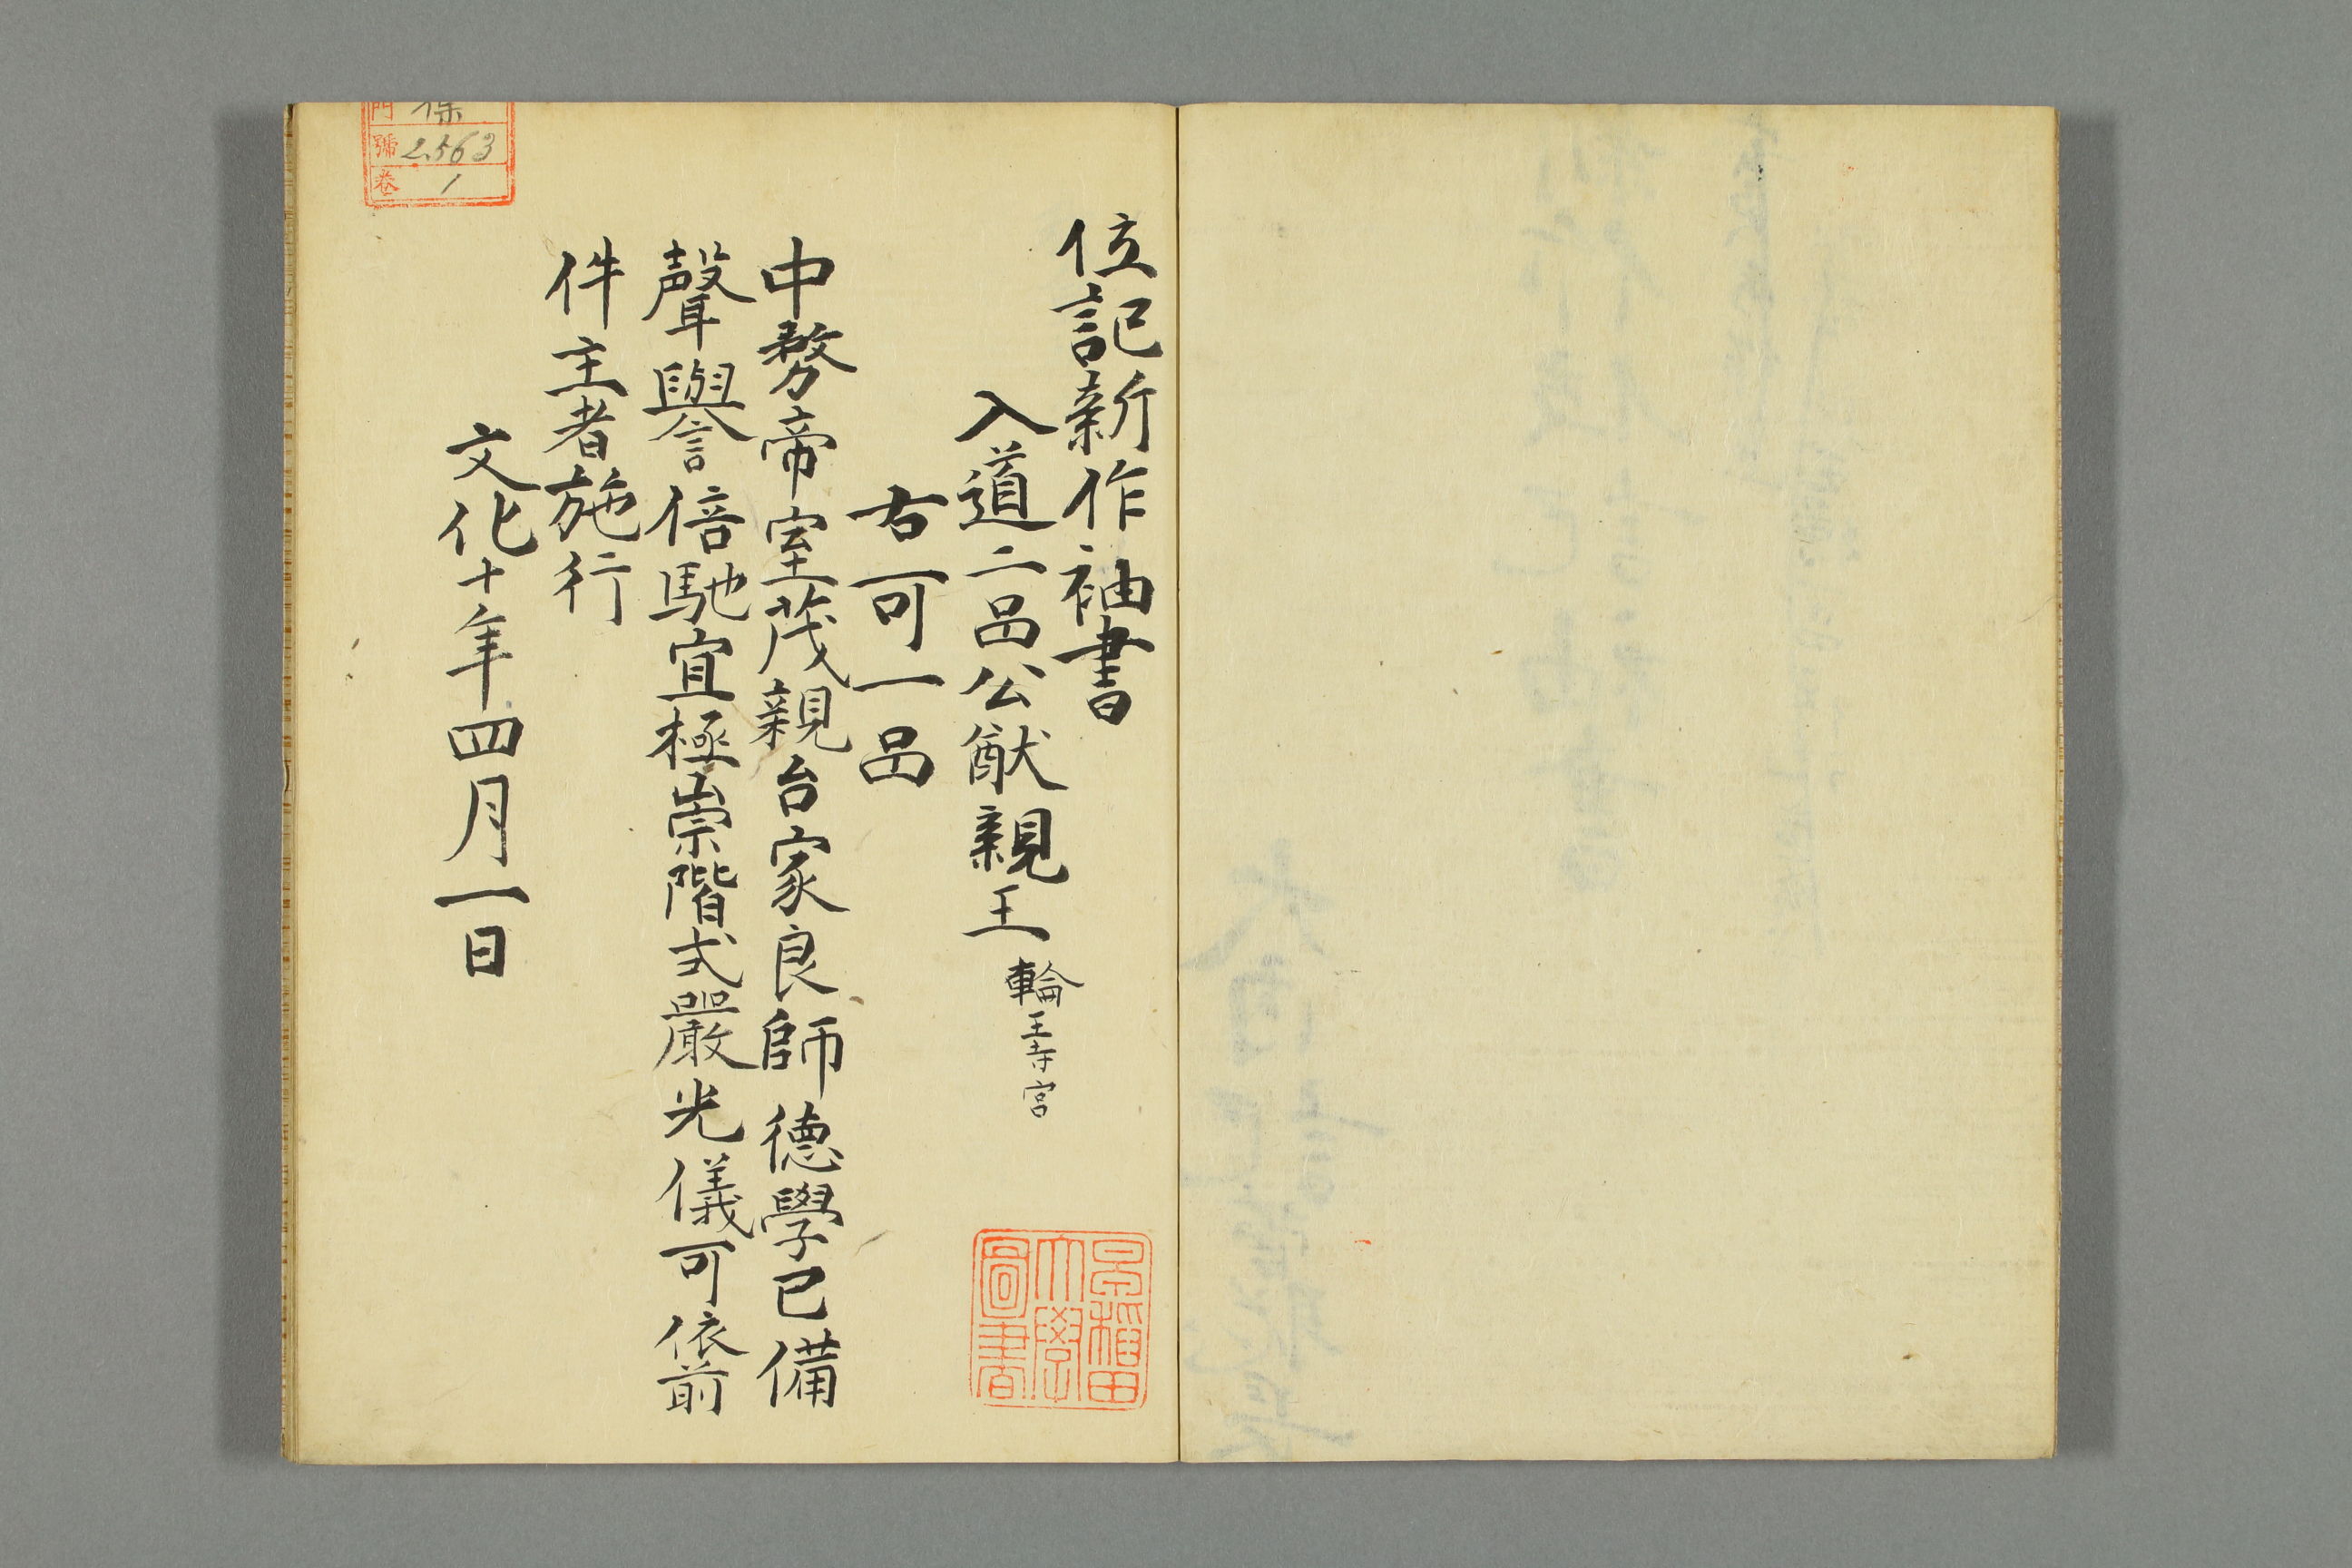 位記新作袖書
入道二品公猷親王 輪王寺宮
右可一品
中務帝室茂親台家良師德學已備
聲譽倍馳宜極崇階式嚴光儀可依前
件主者施行
文化十年四月一日
門
號 2563
卷 1
早稲田
大學
圖書